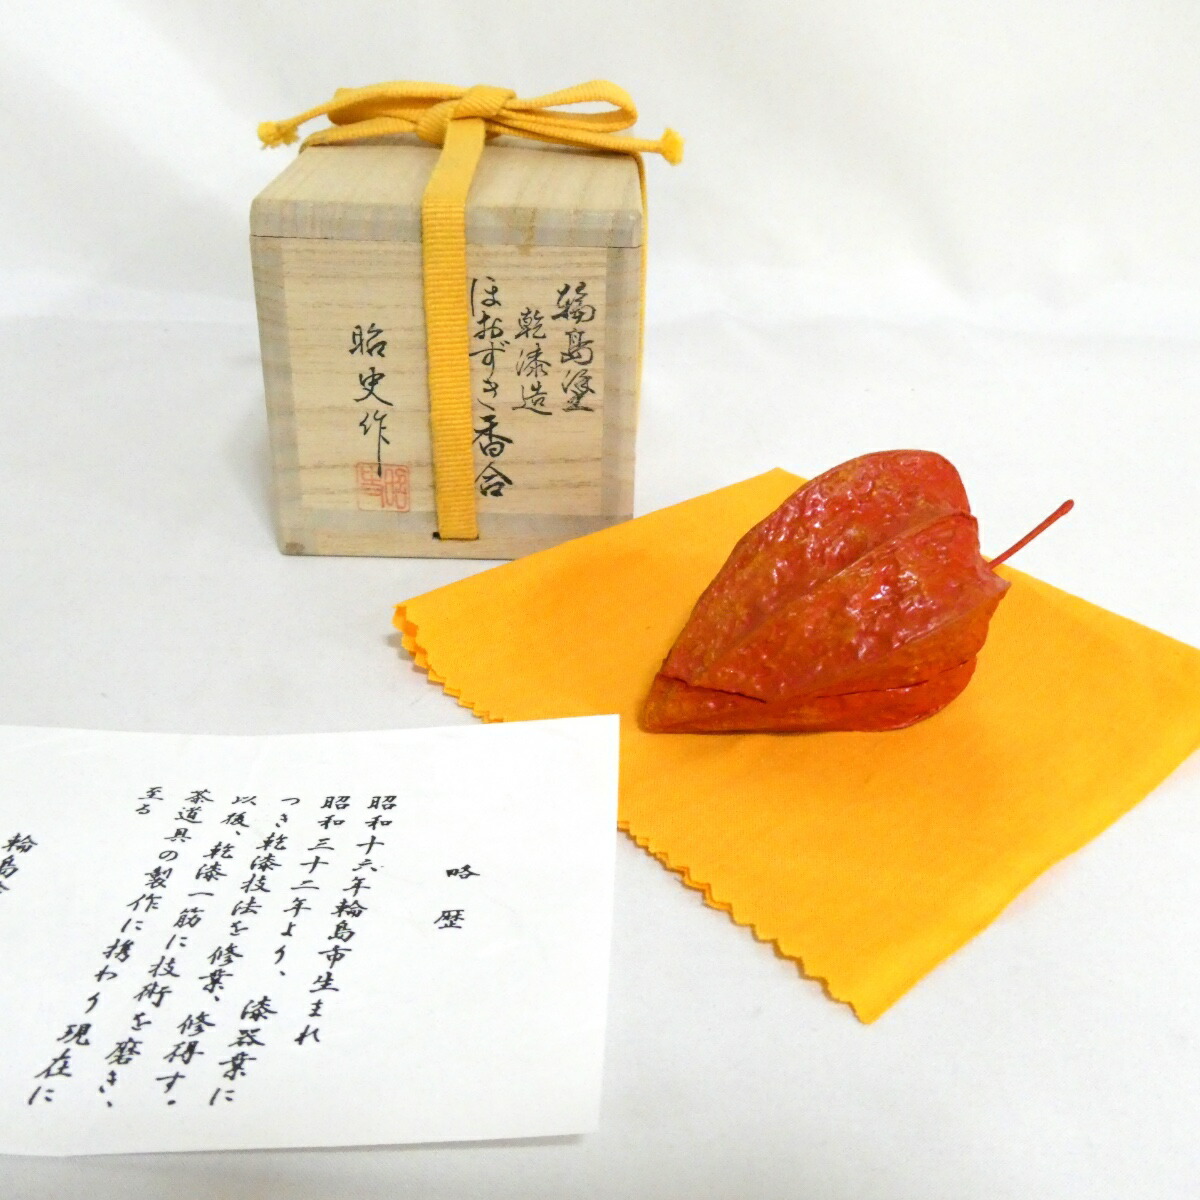 輪島塗
乾漆造
ほおずき香合
昭史作
昭史
略歴
昭和十六年輪島市生まれ
昭和三十二年より、漆器業に
つき乾漆技法を修業、修得す。
以後、乾漆一筋に技術を磨き、
茶道具の製作に携わり現在に
至る
輪島